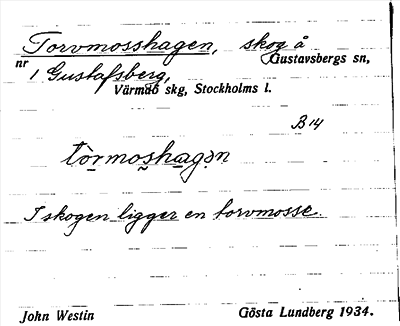 Torvmosshagen, skog å
nr 1 Gustafsberg, Gustavsbergs sn,
Värmdö skg, Stockholms l.
B 14
tòrmoshagən
I skogen ligger en torvmosse.
John Westin Gösta Lundberg 1934.